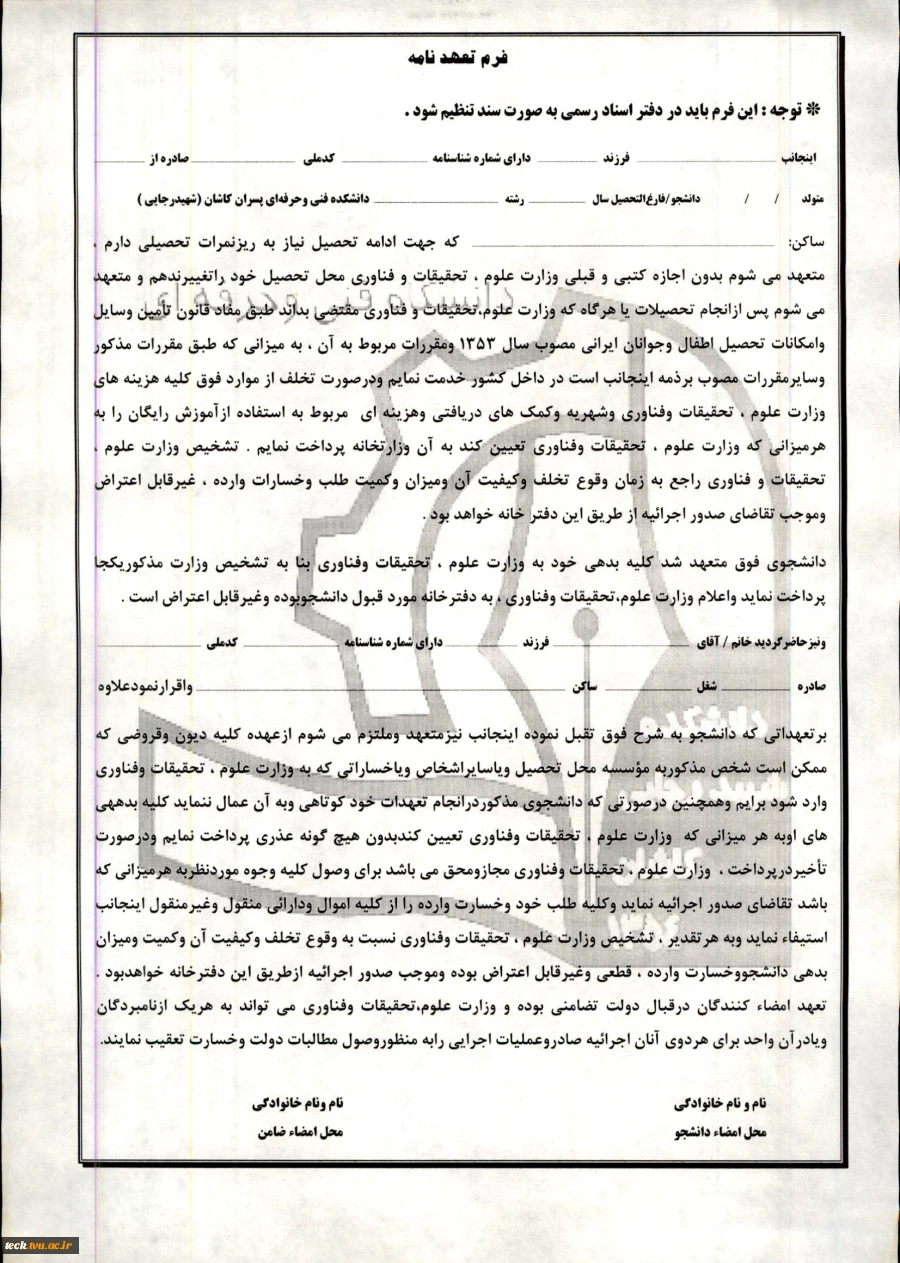 فرم تعهد نامه
❊ توجه : این فرم باید در دفتر اسناد رسمی به صورت سند تنظیم شود .
اینجانب ............ فرزند ............ دارای شماره شناسنامه ............ کدملی ............ صادره از ............
متولد / / دانشجو/فارغ‌التحصیل سال ............ رشته ............ دانشکده فنی وحرفه‌ای پسران کاشان (شهیدرجایی )
ساکن: ............ که جهت ادامه تحصیل نیاز به ریزنمرات تحصیلی دارم ،
متعهد می شوم بدون اجازه کتبی و قبلی وزارت علوم ، تحقیقات و فناوری محل تحصیل خود راتغییرندهم و متعهد
می شوم پس ازانجام تحصیلات یا هرگاه که وزارت علوم،تحقیقات و فناوری مقتضی بداند طبق مفاد قانون تأمین وسایل
وامکانات تحصیل اطفال وجوانان ایرانی مصوب سال ۱۳۵۳ ومقررات مربوط به آن ، به میزانی که طبق مقررات مذکور
وسایرمقررات مصوب برذمه اینجانب است در داخل کشور خدمت نمایم ودرصورت تخلف از موارد فوق کلیه هزینه های
وزارت علوم ، تحقیقات وفناوری وشهریه وکمک های دریافتی وهزینه ای مربوط به استفاده ازآموزش رایگان را به
هرمیزانی که وزارت علوم ، تحقیقات وفناوری تعیین کند به آن وزارتخانه پرداخت نمایم . تشخیص وزارت علوم ،
تحقیقات و فناوری راجع به زمان وقوع تخلف وکیفیت آن ومیزان وکمیت طلب وخسارات وارده ، غیرقابل اعتراض
وموجب تقاضای صدور اجرائیه از طریق این دفتر خانه خواهد بود .
دانشجوی فوق متعهد شد کلیه بدهی خود به وزارت علوم ، تحقیقات وفناوری بنا به تشخیص وزارت مذکوریکجا
پرداخت نماید واعلام وزارت علوم،تحقیقات وفناوری ، به دفترخانه مورد قبول دانشجوبوده وغیرقابل اعتراض است .
ونیزحاضرگردید خانم / آقای ............ فرزند ............ دارای شماره شناسنامه ............ کدملی ............
صادره ............ شغل ............ ساکن ............ واقرارنمودعلاوه
برتعهداتی که دانشجو به شرح فوق تقبل نموده اینجانب نیزمتعهد وملتزم می شوم ازعهده کلیه دیون وقروضی که
ممکن است شخص مذکوربه مؤسسه محل تحصیل ویاسایراشخاص ویاخساراتی که به وزارت علوم ، تحقیقات وفناوری
وارد شود برایم وهمچنین درصورتی که دانشجوی مذکوردرانجام تعهدات خود کوتاهی وبه آن عمال ننماید کلیه بدههی
های اوبه هر میزانی که وزارت علوم ، تحقیقات وفناوری تعیین کندبدون هیچ گونه عذری پرداخت نمایم ودرصورت
تأخیردرپرداخت ، وزارت علوم ، تحقیقات وفناوری مجازومحق می باشد برای وصول کلیه وجوه موردنظربه هرمیزانی که
باشد تقاضای صدور اجرائیه نماید وکلیه طلب خود وخسارت وارده را از کلیه اموال ودارائی منقول وغیرمنقول اینجانب
استیفاء نماید وبه هرتقدیر ، تشخیص وزارت علوم ، تحقیقات وفناوری نسبت به وقوع تخلف وکیفیت آن وکمیت ومیزان
بدهی دانشجووخسارت وارده ، قطعی وغیرقابل اعتراض بوده وموجب صدور اجرائیه ازطریق این دفترخانه خواهدبود .
تعهد امضاء کنندگان درقبال دولت تضامنی بوده و وزارت علوم،تحقیقات وفناوری می تواند به هریک ازنامبردگان
ویادرآن واحد برای هردوی آنان اجرائیه صادروعملیات اجرایی رابه منظوروصول مطالبات دولت وخسارت تعقیب نمایند.
نام و نام خانوادگی
محل امضاء دانشجو
نام ونام خانوادگی
محل امضاء ضامن
دانشکده فنی و حرفه ای
دانشکده
tech.tvu.ac.ir